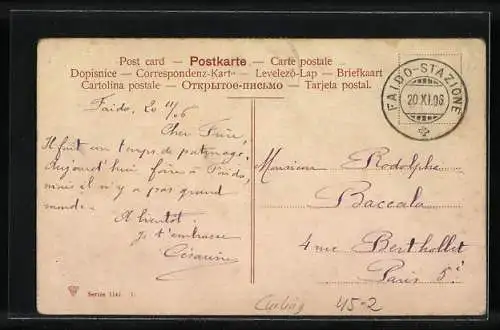 Post card — Postkarte — Carte postale
Dopisnice — Correspondenz-Karte — Levelező-Lap — Briefkaart
Cartolina postale — Открытое-письмо — Tarjeta postal.
FAIDO-STAZIONE
20.XI.06
Faido, 20 11/06
Cher Frère,
Il fait un temps de patinage,
aujourd'hui foire à Faido,
mais il n'y a pas grand
monde.
A bientôt.
je t'embrasse
Césarine
Monsieur Rodolphe
Baccala
4 rue Berthollet
Paris 5e
Serie 1141
45-2